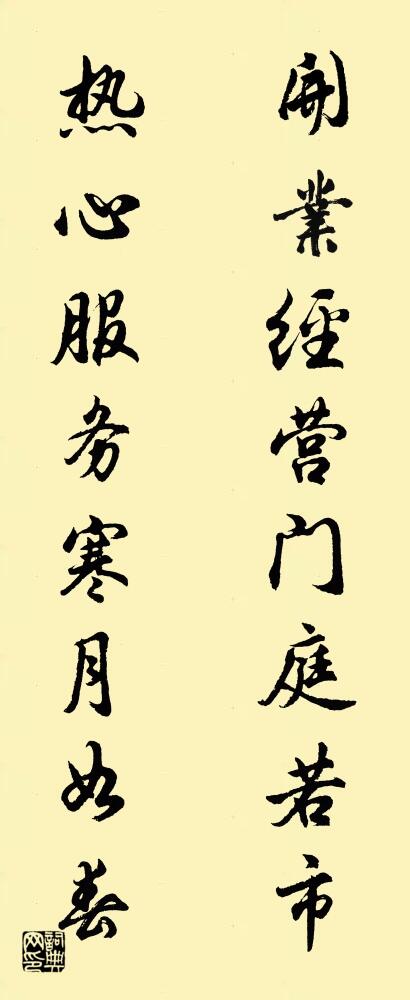 開業經营门庭若市
热心服务寒月如春
詞典网印